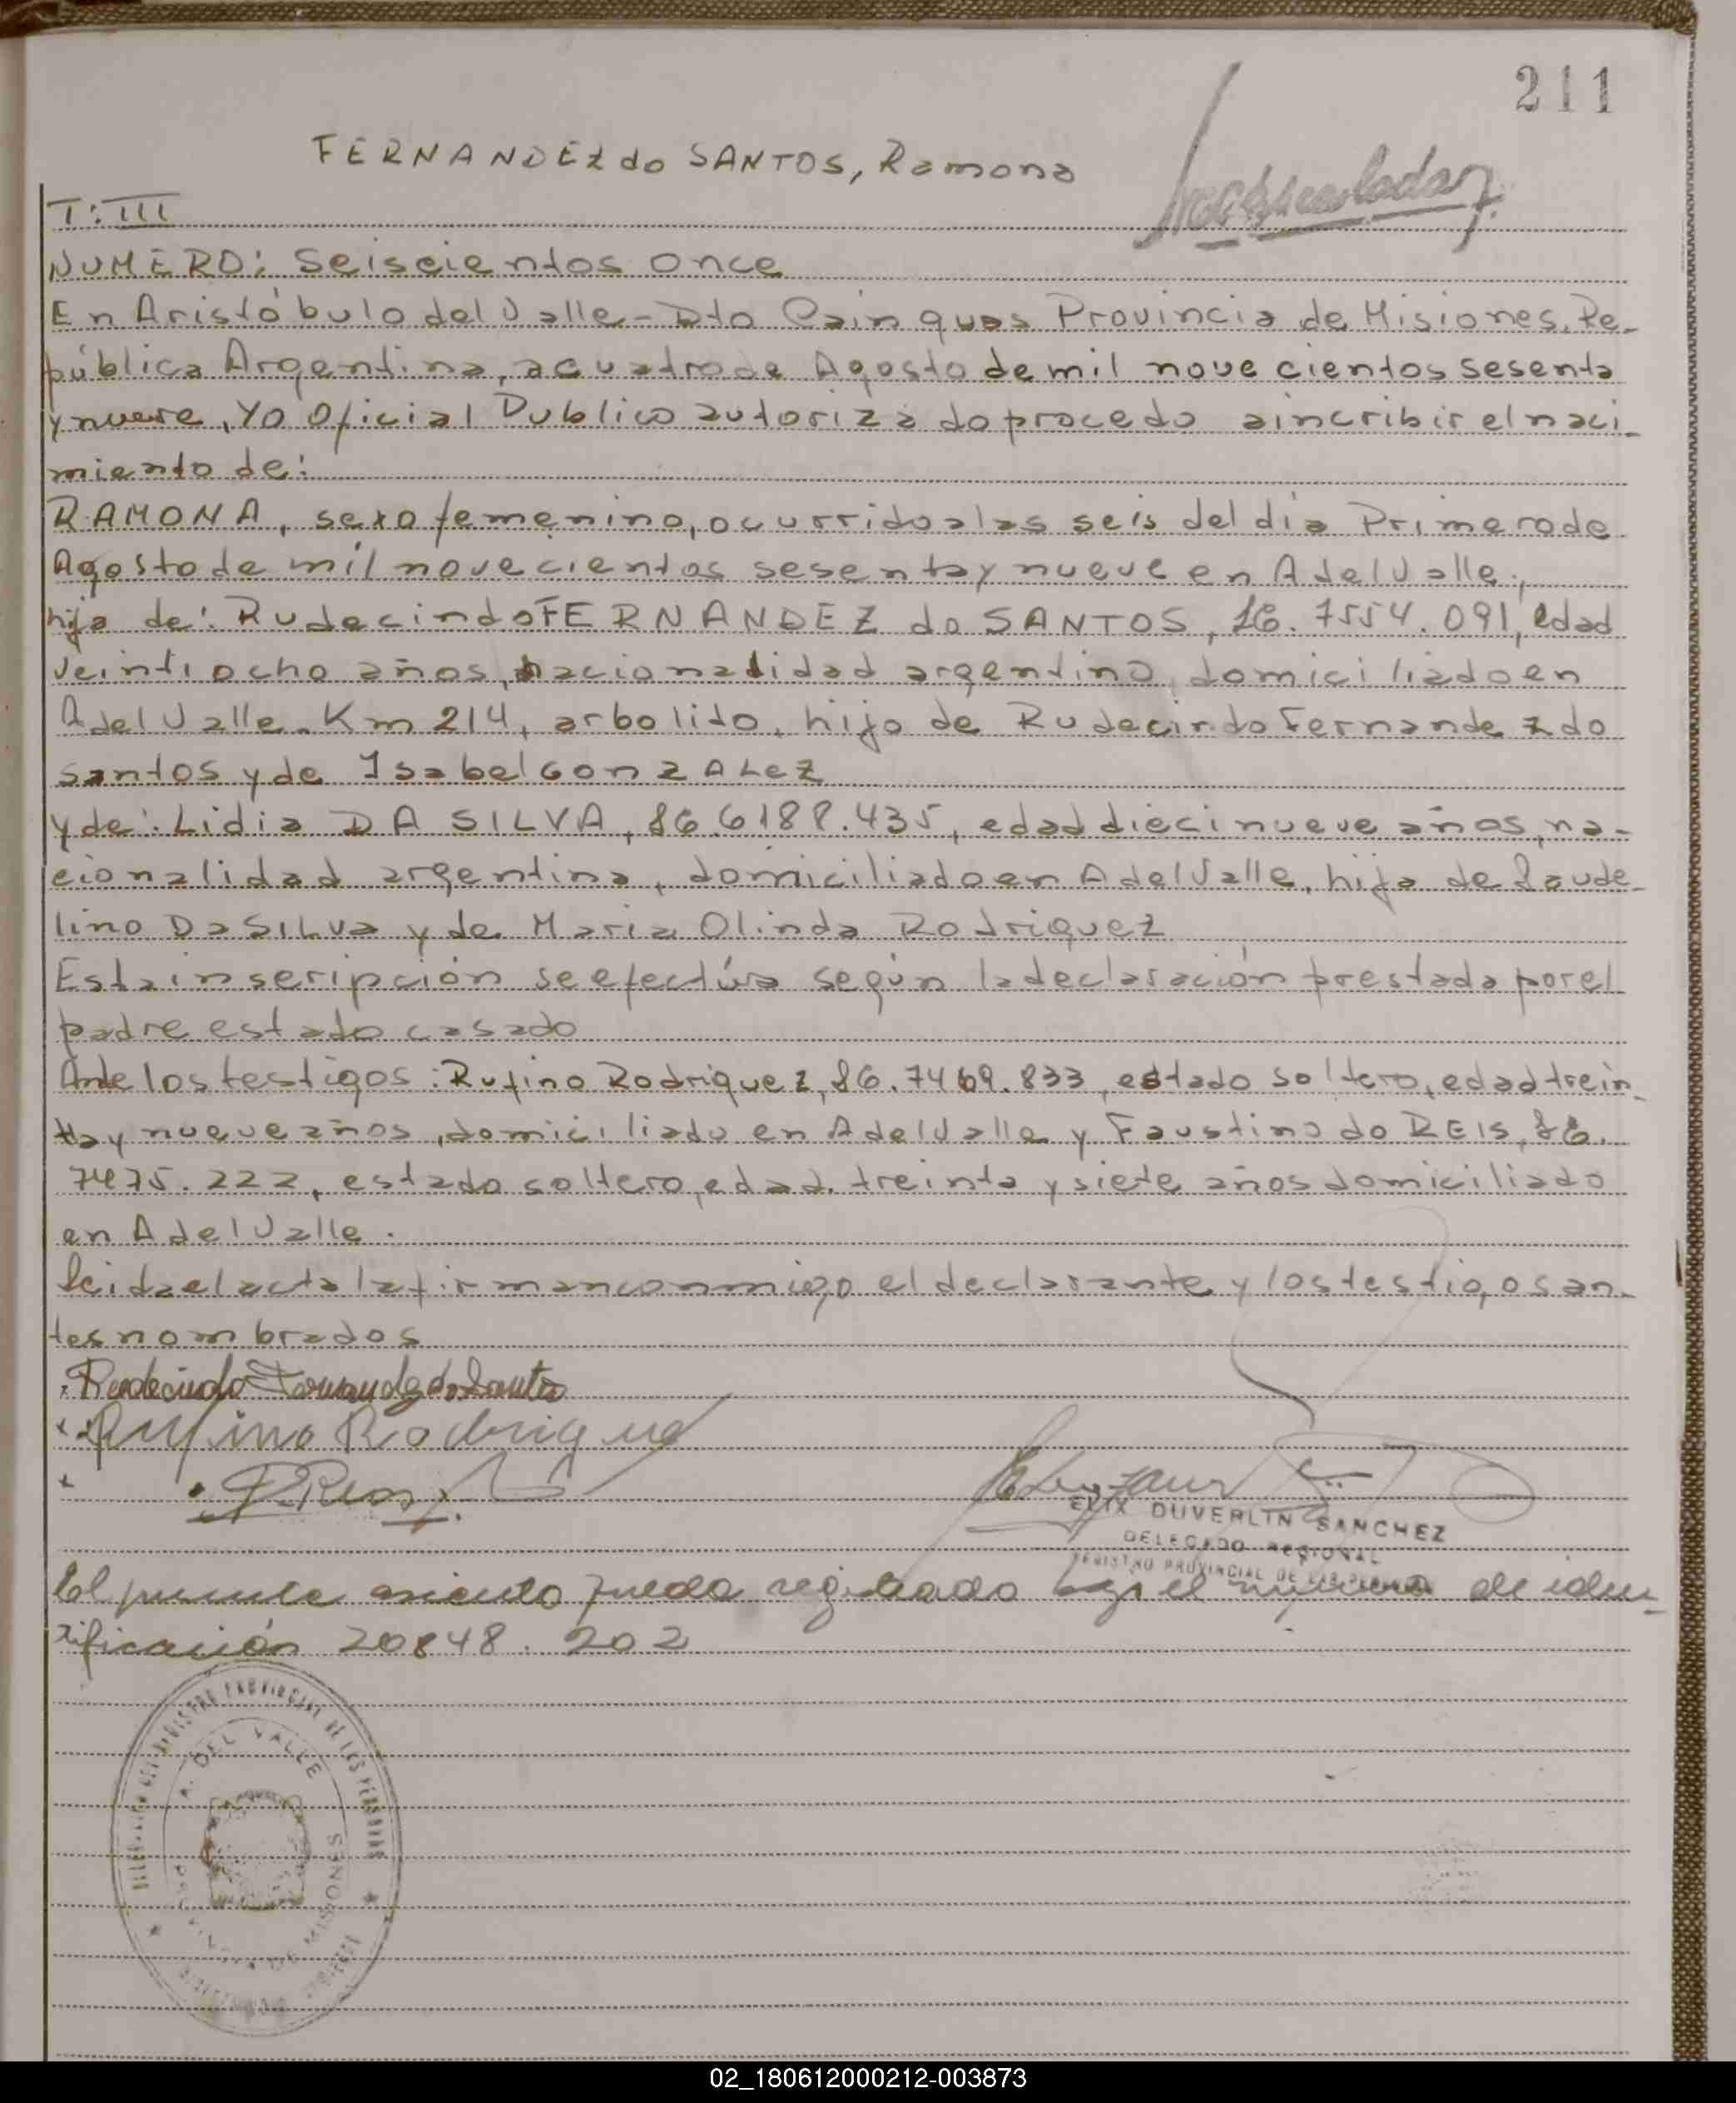 211
FERNANDEZ do SANTOS, Ramona
T: III
NUMERO: Seiscientos once
En Aristóbulo del Valle - Dto Cainguas Provincia de Misiones, Re-
pública Argentina, a cuatro de Agosto de mil novecientos sesenta
y nueve, Yo Oficial Publico autorizado procedo a incribir el naci-
miento de:
RAMONA, sexo femenino, ocurrido a las seis del día Primero de
Agosto de mil novecientos sesenta y nueve en A del Valle.,
hija de: Rudecindo FERNANDEZ do SANTOS, 7554.091, edad
veintiocho años, nacionalidad argentino, domiciliado en
A del Valle. Km 214, arbolito, hijo de Rudecindo Fernandez do
santos y de Isabel GonzALez
y de: Lidia DA SILVA, 6188.435, edad diecinueve años, na-
cionalidad argentina, domiciliado en A del Valle, hija de Laude-
lino Da SILva y de Maria Olinda Rodriguez
Esta inscripción se efectúa según la declaración prestada por el
padre estado casado
Ante los testigos: Rufino Rodriguez, 7469.833, estado soltero, edad trein-
ta y nueve años, domiciliado en A del Valle y Faustino do REIS,
7475.222, estado soltero, edad treinta y siete años domiciliado
en A del Valle.
Leida el acta la firman conmigo el declarante y los testigos an-
tes nombrados
Rudecindo Fernandez do Santos
Rufino Rodriguez
DUVERLIN SANCHEZ
DELEGADO REGIONAL
REGISTRO PROVINCIAL DE LAS
El presente asiento queda registrado bajo el número de iden-
tificación 20848.202
REGISTRO PROVINCIAL DE LAS PERSONAS
A. DEL VALLE
MISIONES
02_180612000212-003873